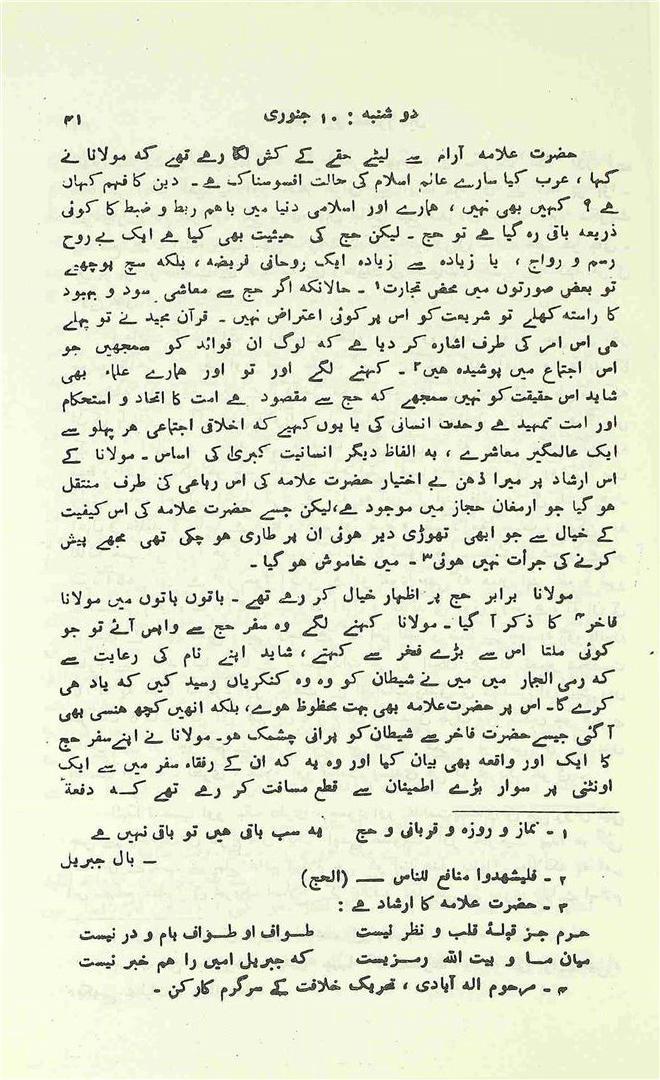 دو شنبہ : ۱۰ جنوری
۴۱
حضرت علامہ آرام سے لیٹے حقے کے کش لگا رہے تھے کہ مولانا نے
کہا ، عرب کیا سارے عالم اسلام کی حالت افسوسناک ہے ۔ دین کا فہم کہاں
ہے ؟ کہیں بھی نہیں ، ہمارے اور اسلامی دنیا میں باہم ربط و ضبط کا کوئی
ذریعہ باقی رہ گیا ہے تو حج ۔ لیکن حج کی حیثیت بھی کیا ہے ایک بے روح
رسم و رواج ، یا زیادہ سے زیادہ ایک روحانی فریضہ ، بلکہ سچ پوچھیے
تو بعض صورتوں میں محض تجارت۱ ۔ حالانکہ اگر حج سے معاشی سود و بہبود
کا راستہ کھلے تو شریعت کو اس پر کوئی اعتراض نہیں ۔ قرآن مجید نے تو پہلے
ہی اس امر کی طرف اشارہ کر دیا ہے کہ لوگ ان فوائد کو سمجھیں جو
اس اجتماع میں پوشیدہ ہیں۲ ۔ کہنے لگے اور تو اور ہمارے علماء بھی
شاید اس حقیقت کو نہیں سمجھے کہ حج سے مقصود ہے امت کا اتحاد و استحکام
اور امت تمہید ہے وحدت انسانی کی یا یوں کہیے کہ اخلاقی اجتماعی ہر پہلو سے
ایک عالمگیر معاشرے ، بہ الفاظ دیگر انسانیت کبریٰ کی اساس ۔ مولانا کے
اس ارشاد پر میرا ذہن بے اختیار حضرت علامہ کی اس رباعی کی طرف منتقل
ہو گیا جو ارمغان حجاز میں موجود ہے،لیکن جسے حضرت علامہ کی اس کیفیت
کے خیال سے جو ابھی تھوڑی دیر ہوئی ان پر طاری ہو چکی تھی مجھے پیش
کرنے کی جرأت نہیں ہوئی۳ ۔ میں خاموش ہو گیا ۔
مولانا برابر حج پر اظہار خیال کر رہے تھے ۔ باتوں باتوں میں مولانا
فاخر۴ کا ذکر آ گیا ۔ مولانا کہنے لگے وہ سفر حج سے واپس آئے تو جو
کوئی ملتا اس سے بڑے فخر سے کہتے ، شاید اپنے نام کی رعایت سے
کہ رمی الجمار میں میں نے شیطان کو وہ وہ کنکریاں رسید کیں کہ یاد ہی
کرے گا ۔ اس پر حضرت علامہ بھی بہت محظوظ ہوے، بلکہ انھیں کچھ ہنسی بھی
آ گئی جیسے حضرت فاخر سے شیطان کو پرانی چشمک ہو ۔ مولانا نے اپنے سفر حج
کا ایک اور واقعہ بھی بیان کیا اور وہ یہ کہ ان کے رفقاء سفر میں سے ایک
اونٹنی پر سوار بڑے اطمینان سے قطع مسافت کر رہے تھے کہ دفعۃً
۱ ۔ نماز و روزہ و قربانی و حج یہ سب باقی ہیں تو باقی نہیں ہے
— بال جبریل
۲ ۔ فلیشھدوا منافع للناس — (الحج)
۳ ۔ حضرت علامہ کا ارشاد ہے :
حرم جز قبلۂ قلب و نظر نیست طواف او طواف بام و در نیست
میان ما و بیت اللہ رمزیست کہ جبریل امیں را ہم خبر نیست
۴ ۔ مرحوم الہ آبادی ، تحریک خلافت کے سرگرم کارکن ۔